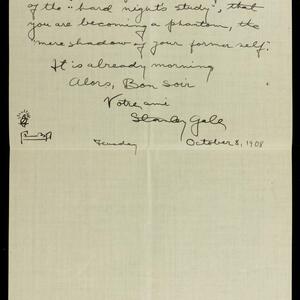 of the "hard night's study", that
you are becoming a phantom, the
"mere shadow of your former self."
It is already morning
Alors, Bon Soir
Votre ami
Stanley Gale
Tuesday October 8, 1908